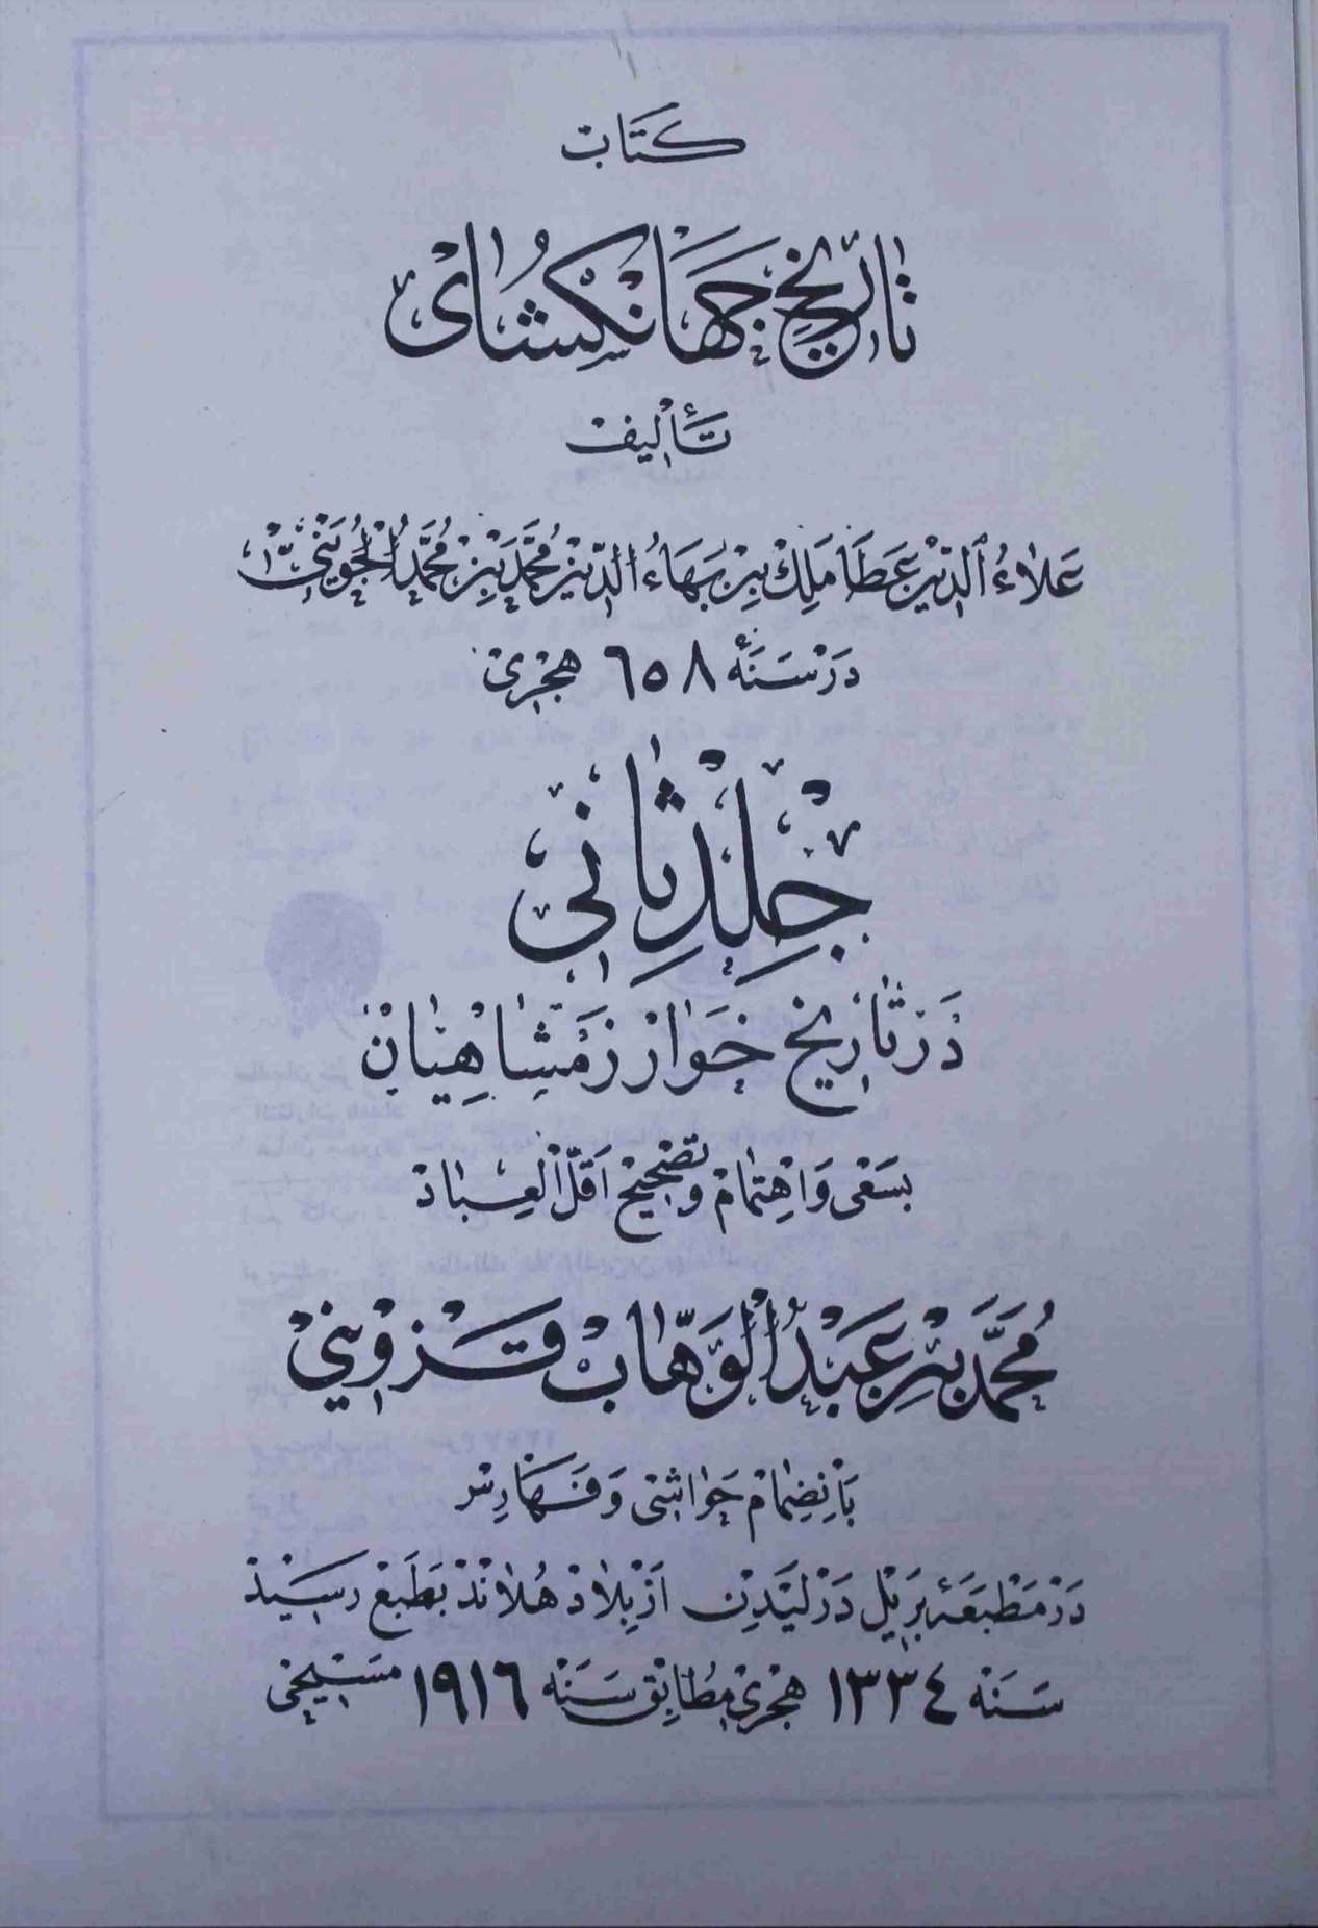 کتاب
تاریخ جهانگشای
تألیف
علاءُ الدّین عطا ملک بن بهاءُ الدّین محمّد بن محمّد الجوینی
در سنهٔ ٦٥٨ هجری
جلد ثانی
در تاریخ خوارزمشاهیان
بسعی و اهتمام و تصحیح اقلّ العباد
محمّد بن عبد الوهّاب قزوینی
بانضمام حواشی و فهارس
در مطبعهٔ بریل در لیدن از بلاد هلاند بطبع رسید
سنه ١٣٣٤ هجری مطابق سنه ١٩١٦ مسیحی